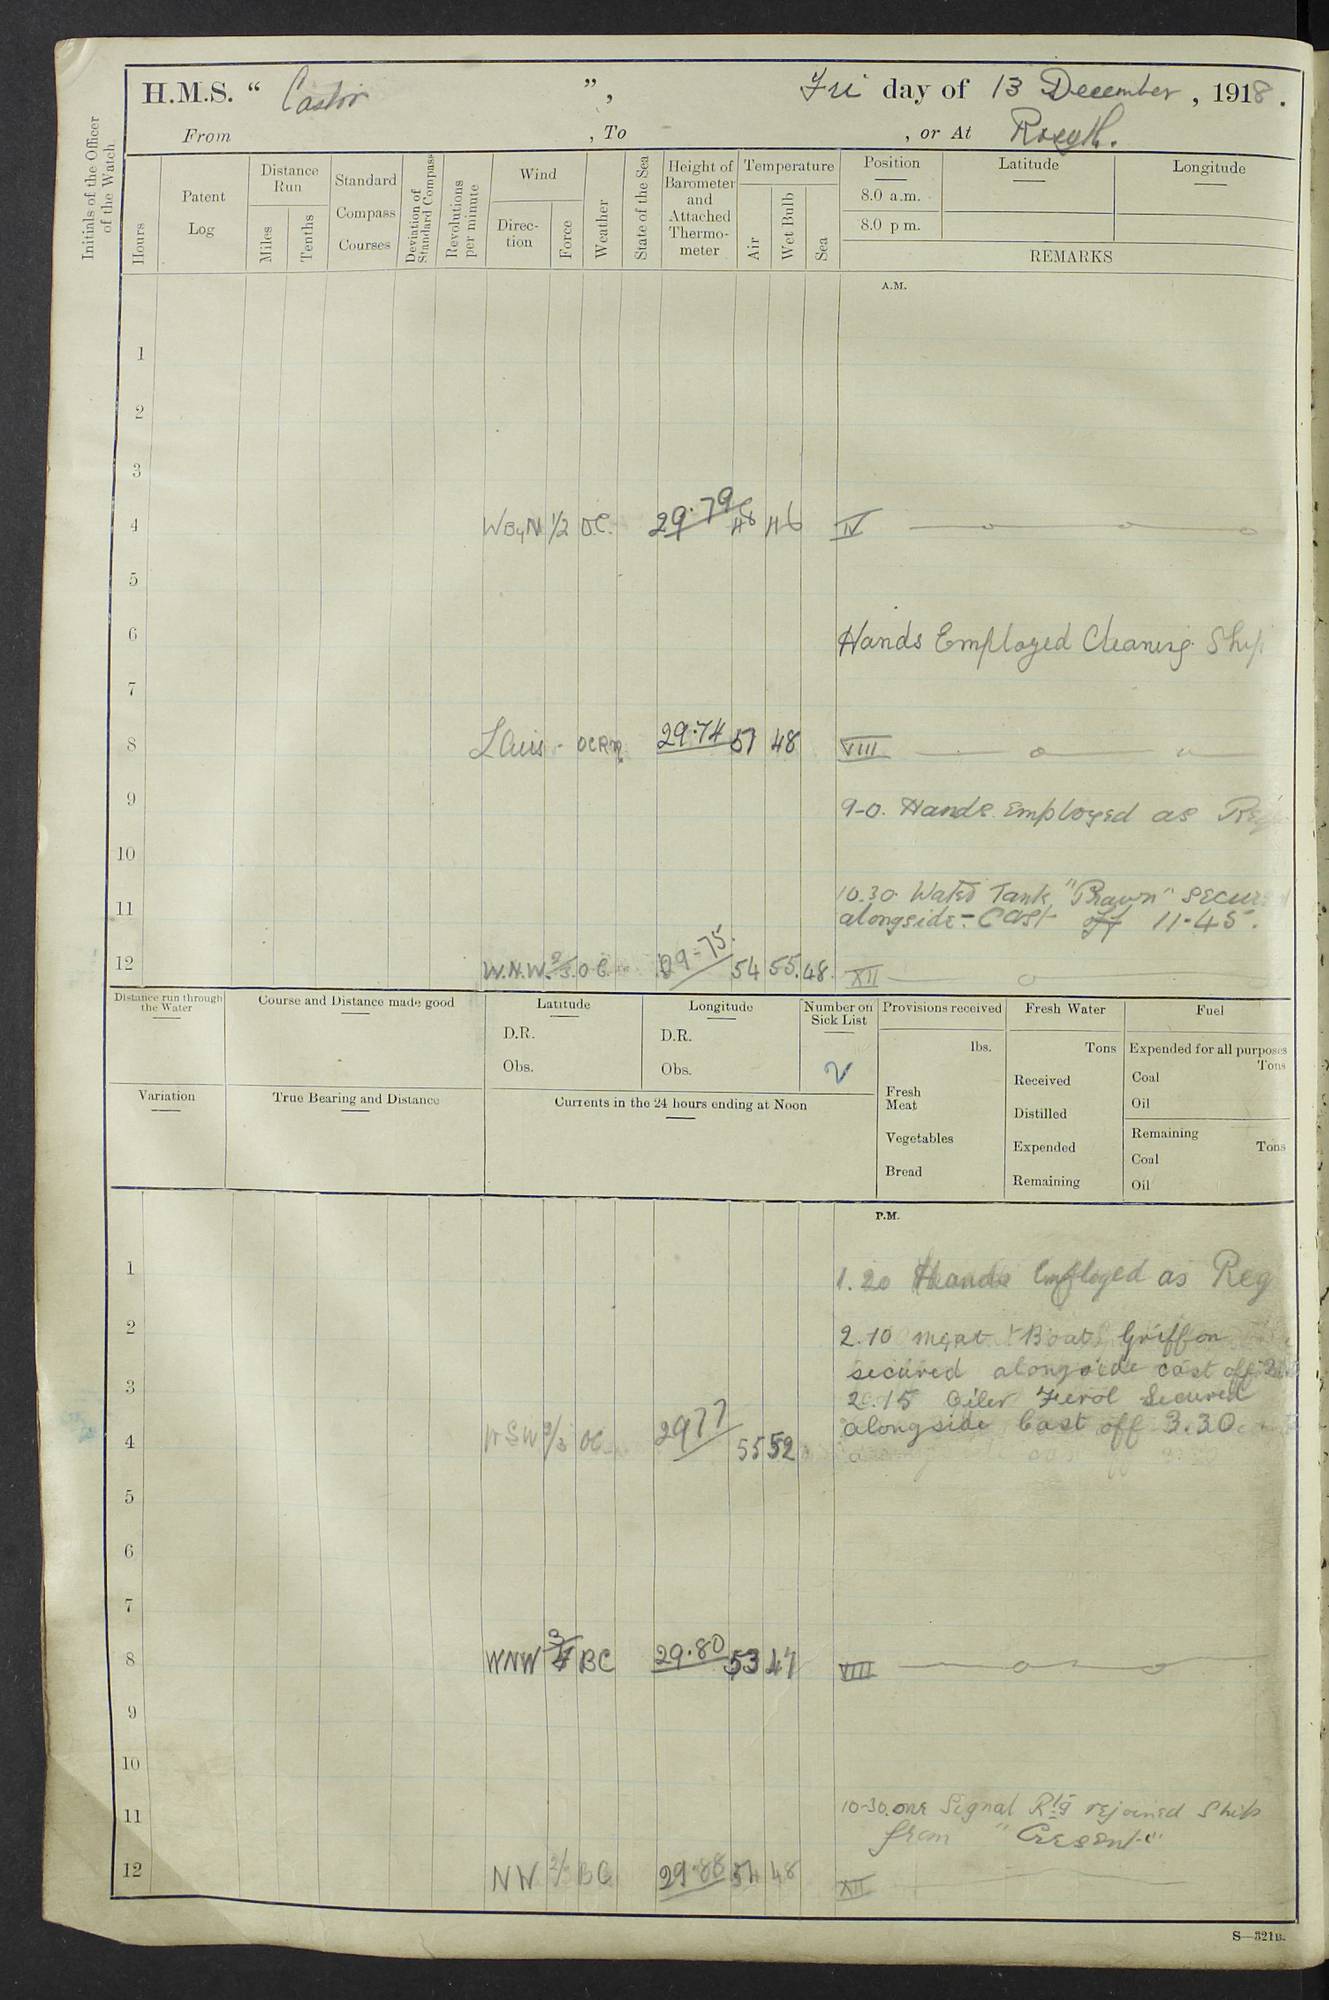 H.M.S. “ Castor ”, Fri day of 13 December, 1918.
From , To , or At Rosyth.
Initials of the Officer
of the Watch
Hours
Patent
Log
Distance
Run
Miles
Tenths
Standard
Compass
Courses
Deviation of
Standard Compass
Revolutions
per minute
Wind
Direc-
tion
Force
Weather
State of the Sea
Height of
Barometer
and
Attached
Thermo-
meter
Temperature
Air
Wet Bulb
Sea
Position
8.0 a.m.
8.0 p m.
Latitude
Longitude
REMARKS
A.M.
1
2
3
4 WByN 1/2 O.C. 29.79 48 46 IV
5
6 Hands Employed Cleaning Ship
7
8 L Airs - OCR 29.74 51 48 VIII
9 9-0. Hands Employed as Req
10
10.30 Water Tank "Prawn" secured
11 alongside - Cast off 11-45.
12 W.N.W. 2/3 O.C. 29.75 54 55 48 XII
Distance run through
the Water
Course and Distance made good
Latitude
D.R.
Obs.
Longitude
D.R.
Obs.
Number on
Sick List
2
Variation
True Bearing and Distance
Currents in the 24 hours ending at Noon
Provisions received
lbs.
Fresh
Meat
Vegetables
Bread
Fresh Water
Tons
Received
Distilled
Expended
Remaining
Fuel
Expended for all purposes
Tons
Coal
Oil
Remaining
Tons
Coal
Oil
P.M.
1 1.20 Hands Employed as Req
2 2.10 Meat Boat Griffon
secured alongside cast off
3 2.15 Oiler Ferol Secured
alongside Cast off 3.30
4 WSW 2/3 OC 2977 55 52
5
6
7
8 WNW 3/4 BC 29.80 53 47 VIII
9
10
11 10-30. one Signal Rtg rejoined Ship
from "Cresent"
12 NW 2/3 BC 29.88 54 48 XII
S—321B.